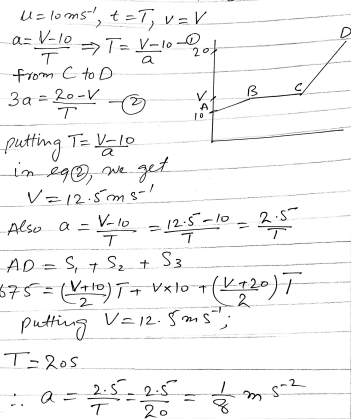 u=10ms⁻¹, t=T, v=V
a=(V-10)/T ⇒ T=(V-10)/a -①
from C to D
3a=(20-V)/T -②
putting T=(V-10)/a
in eq②, we get
V=12.5ms⁻¹
Also a=(V-10)/T=(12.5-10)/T=2.5/T
AD=S₁+S₂+S₃
675=((V+10)/2)T+V×10+((V+20)/2)T
putting V=12.5ms⁻¹;
T=20s
∴ a=2.5/T=2.5/20=1/8 ms⁻²
20
V
A
10
B
C
D